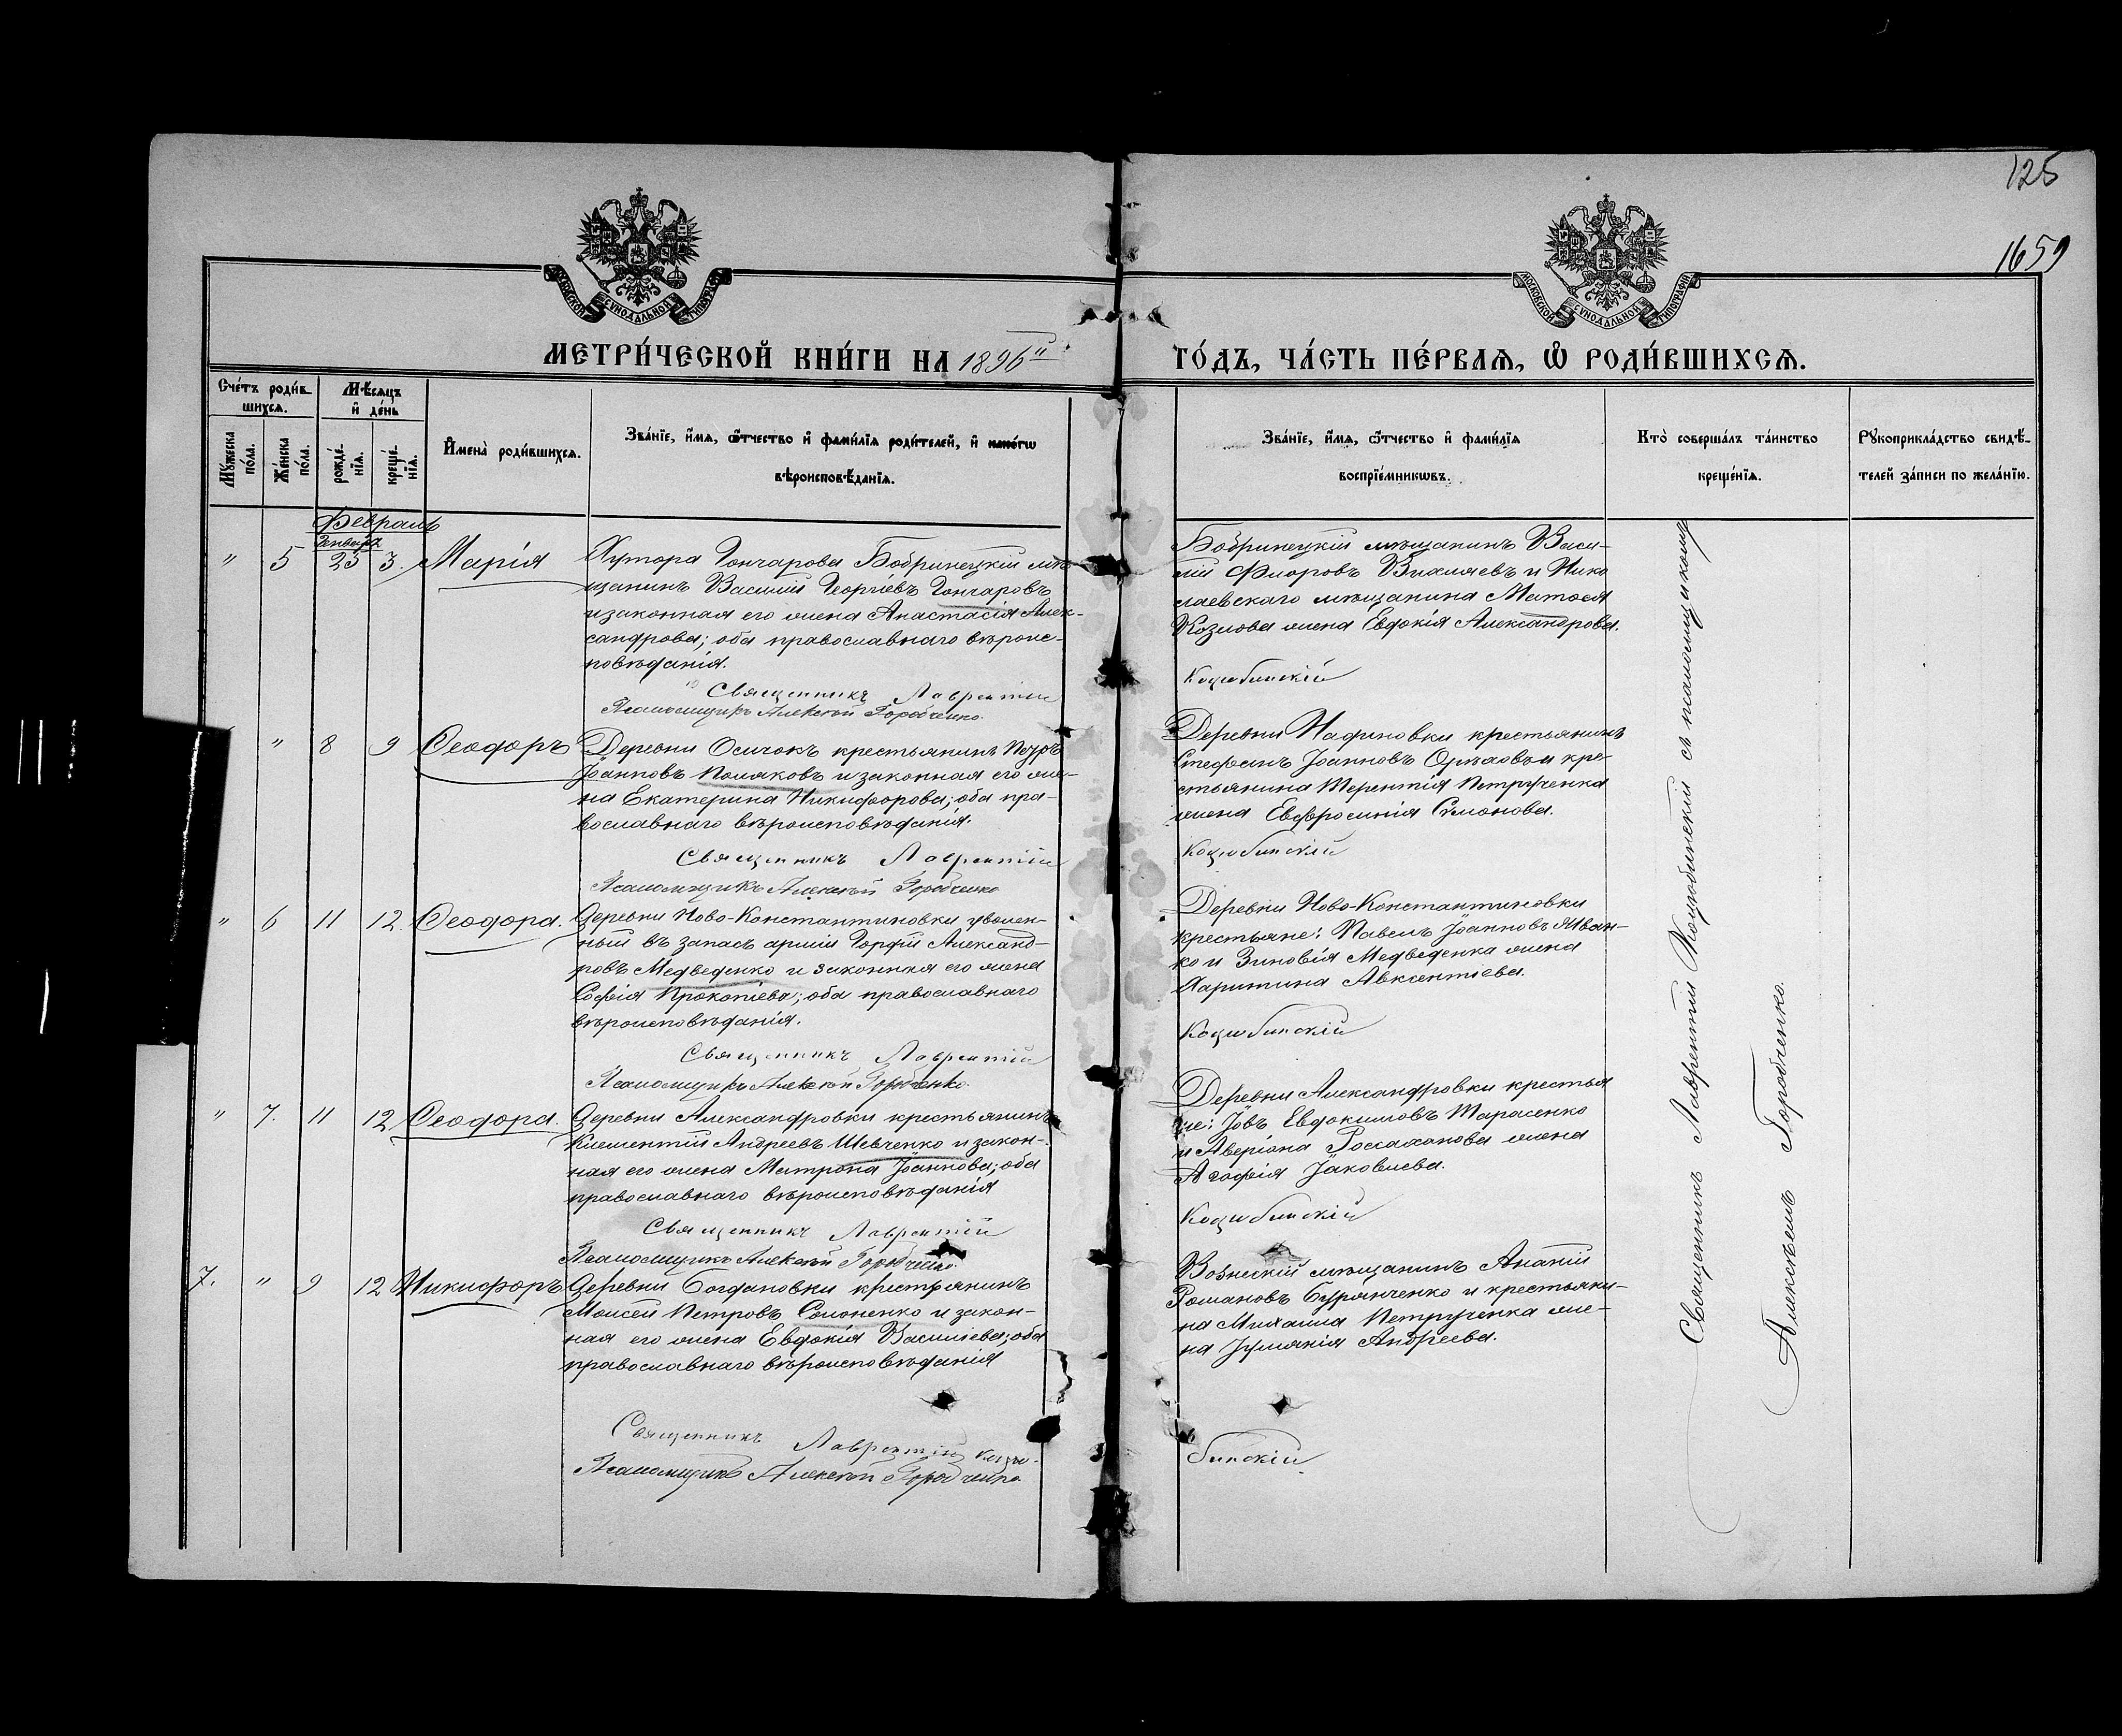 125
1659
МОСКОВСКОЙ СѴНОДАЛЬНОЙ ТИПОГРАФІИ
МОСКОВСКОЙ СѴНОДАЛЬНОЙ ТИПОГРАФІИ
МЕТРИ́ЧЕСКОЙ КНИ́ГИ НА 1896й
ГО́ДЪ, ЧА́СТЬ ПЕ́РВАѦ, Ѡ҆ РОДИ́ВШИХСѦ.
Сче́тъ роди́в
шихсѧ.
Мѣ́сѧцъ
и҆ де́нь
Мꙋ́жеска по́ла.
Же́нска по́ла.
рожде́нїѧ.
креще́нїѧ.
И҆мена̀ роди́вшихсѧ.
Зва́нїе, и҆́мѧ, ѻ҆́тчество и҆ фами́лїѧ роди́телей, и҆ како́гѡ
вѣроисповѣ́данїѧ.
Зва́нїе, и҆́мѧ, ѻ҆́тчество и҆ фами́лїѧ
воспрїе́мникѡвъ.
Кто̀ соверша́лъ та́инство
креще́нїѧ.
Рꙋкоприкла́дство свидѣ́-
телей за́писи по жела́нїю.
Февраль
Января
" 5 23 3. Марія
Хутора Гончарова Бобринецкій мѣ-
щанинъ Василій Георгіевъ Гончаровъ
и законная его жена Анастасія Алек-
сандрова; оба православнаго вѣроис-
повѣданія.
Священникъ Лаврентій
Псаломщикъ Алексѣй Горобченко.
Бобринецкій мѣщанинъ Васи-
лій Флоровъ Вихляевъ и Нико
лаевскаго мѣщанина Матѳея
Козлова жена Евдокія Александрова.
Коцюбинскій
" 8 9 Ѳеодоръ
Деревни Осичокъ крестьянинъ Петръ
Іоанновъ Поляковъ и законная его же-
на Екатерина Никифорова; оба пра-
вославнаго вѣроисповѣданія.
Священникъ Лаврентій
Псаломщикъ Алексѣй Горобченко
Деревни крестьянинъ
Стефанъ Іоанновъ и кре-
стьянина Терентія Петрученка
жена Евфросинія Симонова.
Коцюбинскій
" 6 11 12. Ѳеодора.
Деревни Ново-Константиновки уволен-
ный въ запасъ арміи Гордій Александ-
ровъ Медведенко и законная его жена
Софія Прокопіева; оба православнаго
вѣроисповѣданія.
Священникъ Лаврентій
Псаломщикъ Алексѣй Горобченко.
Деревни Ново-Константиновки
крестьяне: Павелъ Іоанновъ Иван-
ко и Зиновія Медведенка жена
Харитина Авксентіева.
Коцюбинскій
" 7. 11 12 Ѳеодора.
Деревни Александровки крестьянинъ
Климентій Андреевъ Шевченко и закон-
ная его жена Матрона Іоаннова; оба
православнаго вѣроисповѣданія
Священникъ Лаврентій
Псаломщикъ Алексѣй Горобченко.
Деревни Александровки крестья
не: Іовъ Евдокимовъ Тарасенко
и Аверіана жена
Агафія Іаковлева.
Коцюбинскій
7. " 9 12 Никифоръ
Деревни Богдановки крестьянинъ
Моисей Петровъ Сомоненко и закон-
ная его жена Евдокія Василіева; оба
православнаго вѣроисповѣданія
Священникъ Лаврентій Коцю-
Псаломщикъ Алексѣй Горобченко
мѣщанинъ Ананій
Романовъ Бурянченко и крестьяни-
на Михаила Петрученка же-
на Іуліанія Андреева.
бинскій
Священникъ Лаврентій Коцюбинскій съ псаломщикомъ
Алексѣемъ Горобченко.